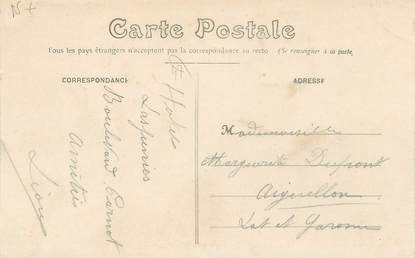 Carte Postale
Tous les pays étrangers n'acceptent pas la correspondance au recto (Se renseigner à la poste)
CORRESPONDANCE
ADRESSE
Hôtel
Boulevard Carnot
Amitiés
Mademoiselle
Marguerite Dupont
Aiguillon
Lot et Garonne